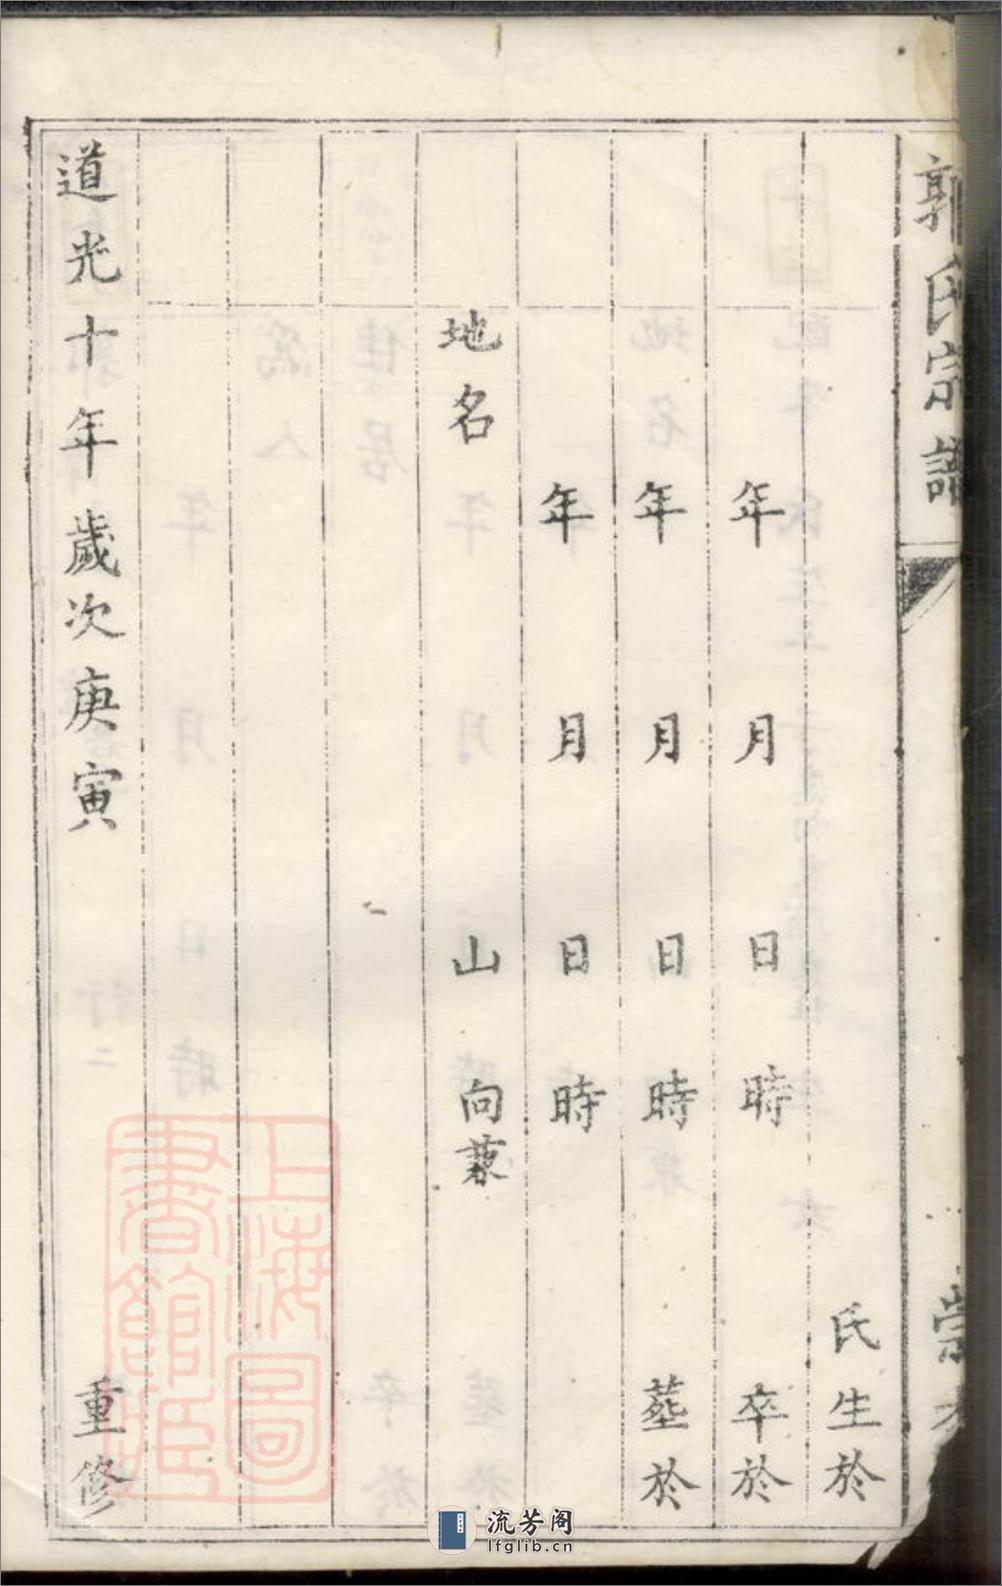 郭氏宗譜
崇本
氏生於
年月日時卒於
年月日時塟於
年月日時
地名山向
道光十年歲次庚寅重修
上海圖書館藏
流芳阁
lfglib.cn